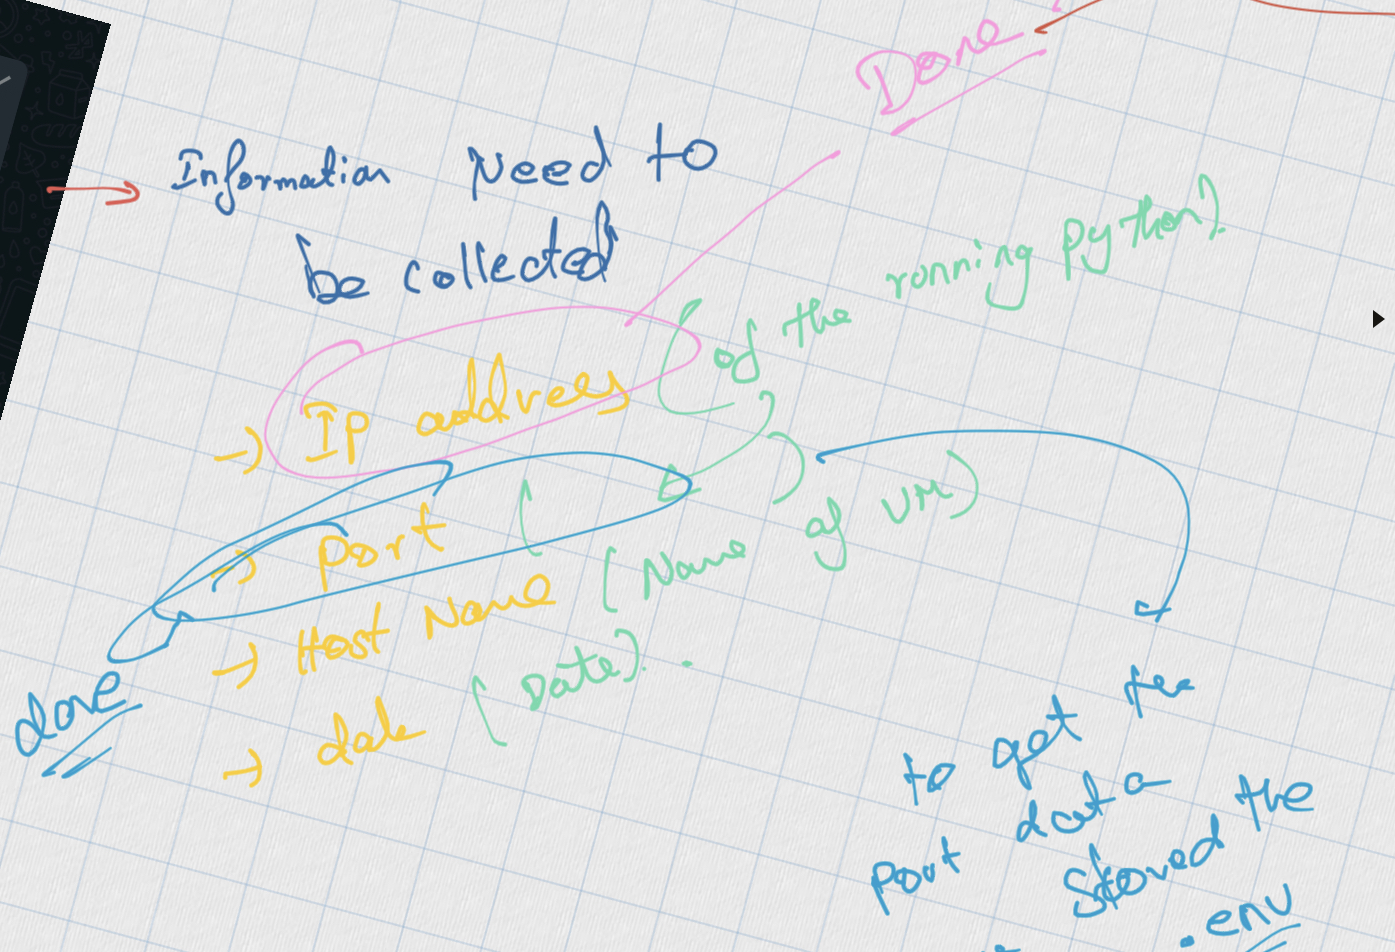 Done
Information Need to
be collected
(of the running python)
→ IP address
→ Port ( )
→ Host Name (Name of VM)
→ date (Date).
done
to get the
port data
stored the
.env